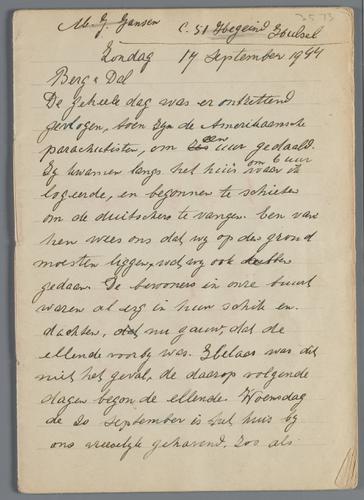 M. J. Jansen C. 51 Hegeind Hulsel
Zondag 17 September 1944
Berg & Dal
De geheele dag was er ontzettend
gevlogen, toen zyn de Amerikaansche
parachutisten, om een uur gedaald.
Zy kwamen langs het huis waar ik om 6 uur
logeerde, en begonnen te schieten
om de duitschers te vangen. Een van
hen wees ons dat wy op den grond
moesten liggen, wat wy ook
gedaan. De bewoners in onze buurt
waren al erg in hun schik en
dachten, dat nu gauw, dat de
ellende voorby was. Helaas was dit
niet het geval, de daarop volgende
dagen begon de ellende. Woensdag
de 20 September is het huis by
ons vreeselyk gehavend. Zoo als